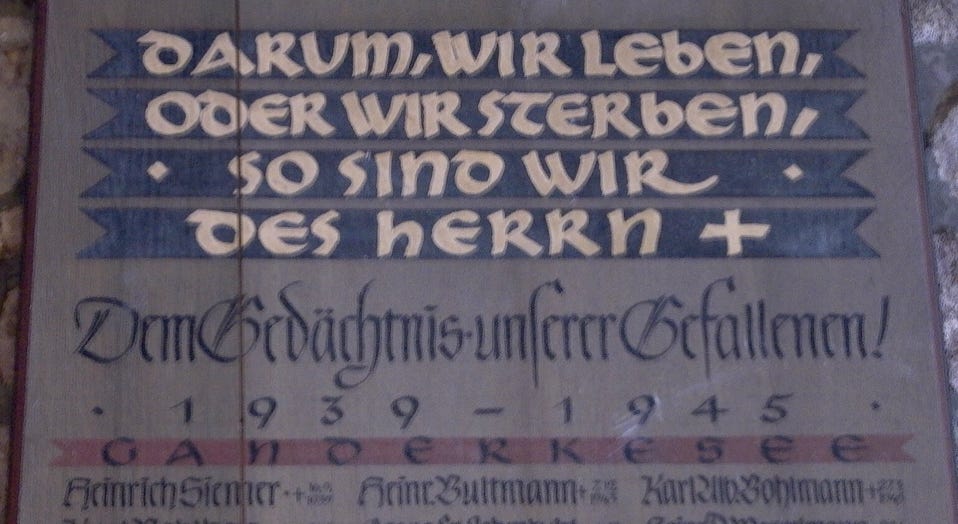 DARUM, WIR LEBEN,
ODER WIR STERBEN,
· SO SIND WIR ·
DES HERRN +
Dem Gedächtnis unserer Gefallenen!
· 1939 – 1945 ·
GANDERKESEE
Heinrich + Heinr. Bultmann + Karl Bohlmann +